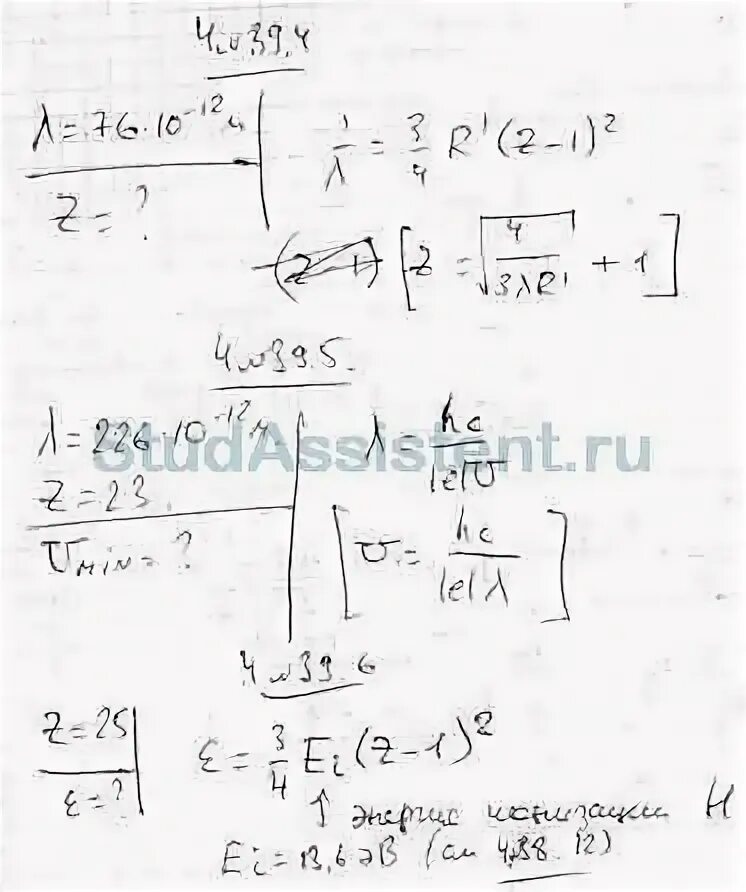 4.39.4
λ = 76·10⁻¹² м
Z = ?
1/λ = 3/4 R'(Z-1)²
[Z = √(4/(3λR')) + 1]
4.39.5.
λ = 226·10⁻¹² м
Z = 23
U min = ?
λ = hc/|e|U
[U = hc/|e|λ]
StudAssistent.ru
4.39.6
Z = 25
ε = ?
ε = 3/4 Ei (Z-1)²
↑ энергия ионизации H
Ei = 13,6 эВ (см 4.38.12)